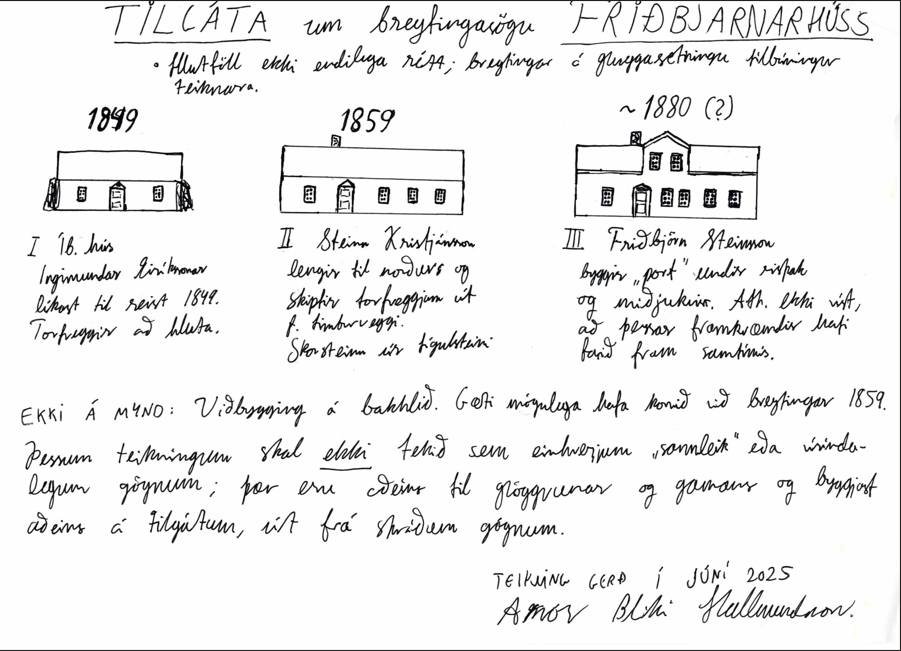 TILGÁTA um breytingasögu FRIÐBJARNARHÚSS
• Hlutföll ekki endilega rétt; breytingar á gluggasetningu tilbúningur
teiknara.
1849
1859
~ 1880 (?)
I Íb. hús
Ingimundar Eiríkssonar
líkast til reist 1849.
Torfveggir að hluta.
II Steinn Kristjánsson
lengir til norðurs og
skiptir torfveggjum út
f. timburveggi.
Skorsteinn úr tígulsteini
III Friðbjörn Steinsson
byggir „port“ undir rispak
og miðjukvist. Ath. ekki víst,
að þessar framkvæmdir hafi
farið fram samtímis.
EKKI Á MYND: Viðbygging á bakhlið. Gæti mögulega hafa komið við breytingar 1859.
Þessum teikningum skal ekki tekið sem einhverjum „sannleik“ eða vísinda-
legum gögnum; þær eru aðeins til glöggvunar og gamans og byggjast
aðeins á tilgátum, út frá skráðum gögnum.
TEIKNING GERÐ Í JÚNÍ 2025
Arnór Bliki Hallmundsson.